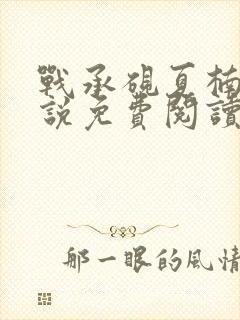 戰承硯夏楠
說免費閱讀
那一眼的風情